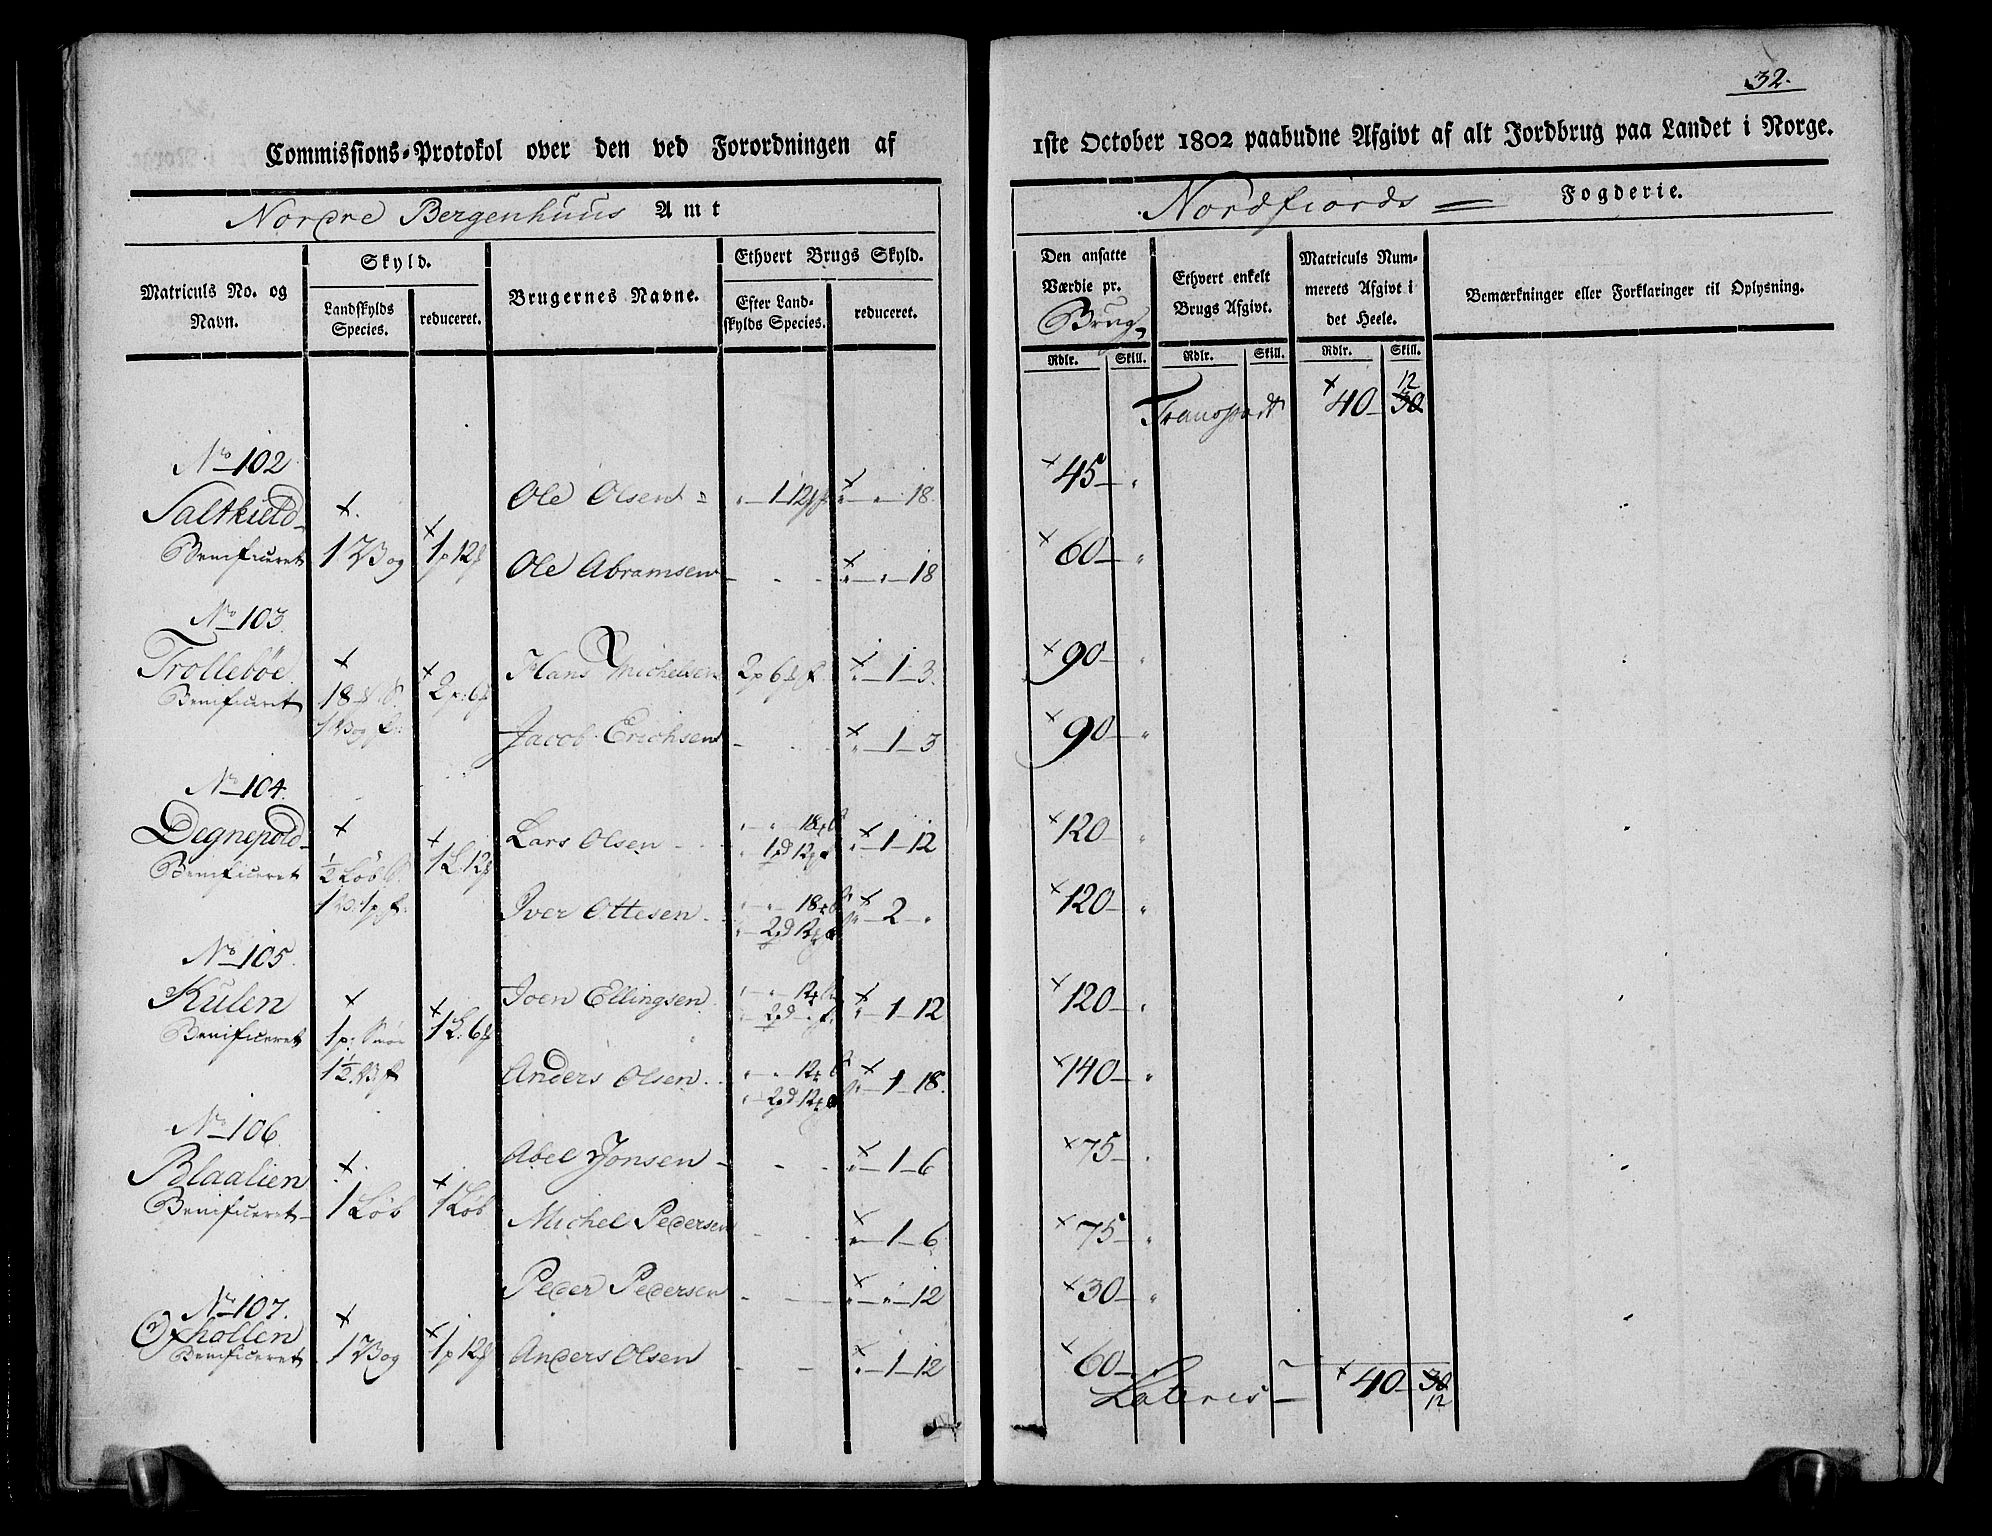 32.
Commissions-Protokol over den ved Forordningen af
1ste October 1802 paabudne Afgivt af alt Jordbrug paa Landet i Norge.
Nordre Bergenhuus Amt
Nordfiords Fogderie.
Matriculs No. og Navn.
Skyld.
Landskylds Species.
reduceret.
Brugernes Navne.
Ethvert Brugs Skyld.
Efter Landskylds Species.
reduceret.
Den ansatte Værdie pr. Brug
Ethvert enkelt Brugs Afgivt.
Matriculs Nummerets Afgivt i det Heele.
Bemærkninger eller Forklaringer til Oplysning.
Rdlr. Skill. Rdlr. Skill. Rdlr. Skill.
Transportt 40 - 12
30
No 102
Saltkield
Benificeret
1 Vog
1 p 12
Ole Olsen
1 - 12
18
45
Ole Abramsen
18
60
No 103
Trollebøe
Benificeret
18
1 Vog f:
2 p: 6
Hans Michelsen
2 p 6
1 - 3
90
Jacob Erichsen
1 - 3
90
No 104
Degnepold
Benificeret
1/2 Løb S.
1 V. 1 p f.
1 L. 12
Lars Olsen
18
1 pd 12
1 - 12
120
Iver Ottesen
18
2 pd 12
2
120
No 105
Kulen
Benificeret
1 p: Smør
1 1/2 V f
1 L. 6
Joen Ellingsen
12
2 pd f.
1 - 12
120
Anders Olsen
12
2 pd 12
1 - 18
140
No 106
Blaalien
Benificeret
1 Løb
1 Løb
Abel Jonsen
1 - 6
75
Michel Pedersen
1 - 6
75
Peder Pedersen
12
30
No 107
Oxhollen
Benificeret
1 Vog
1 p 12
Anders Olsen
1 - 12
60
Lateris 40 - 30
12